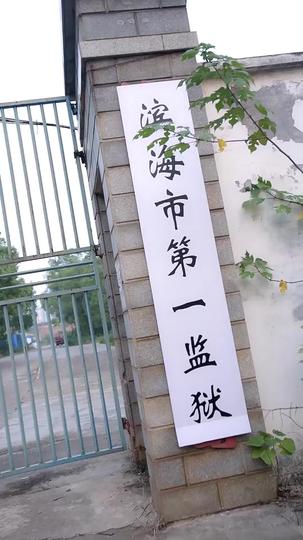 滨海市第一监狱